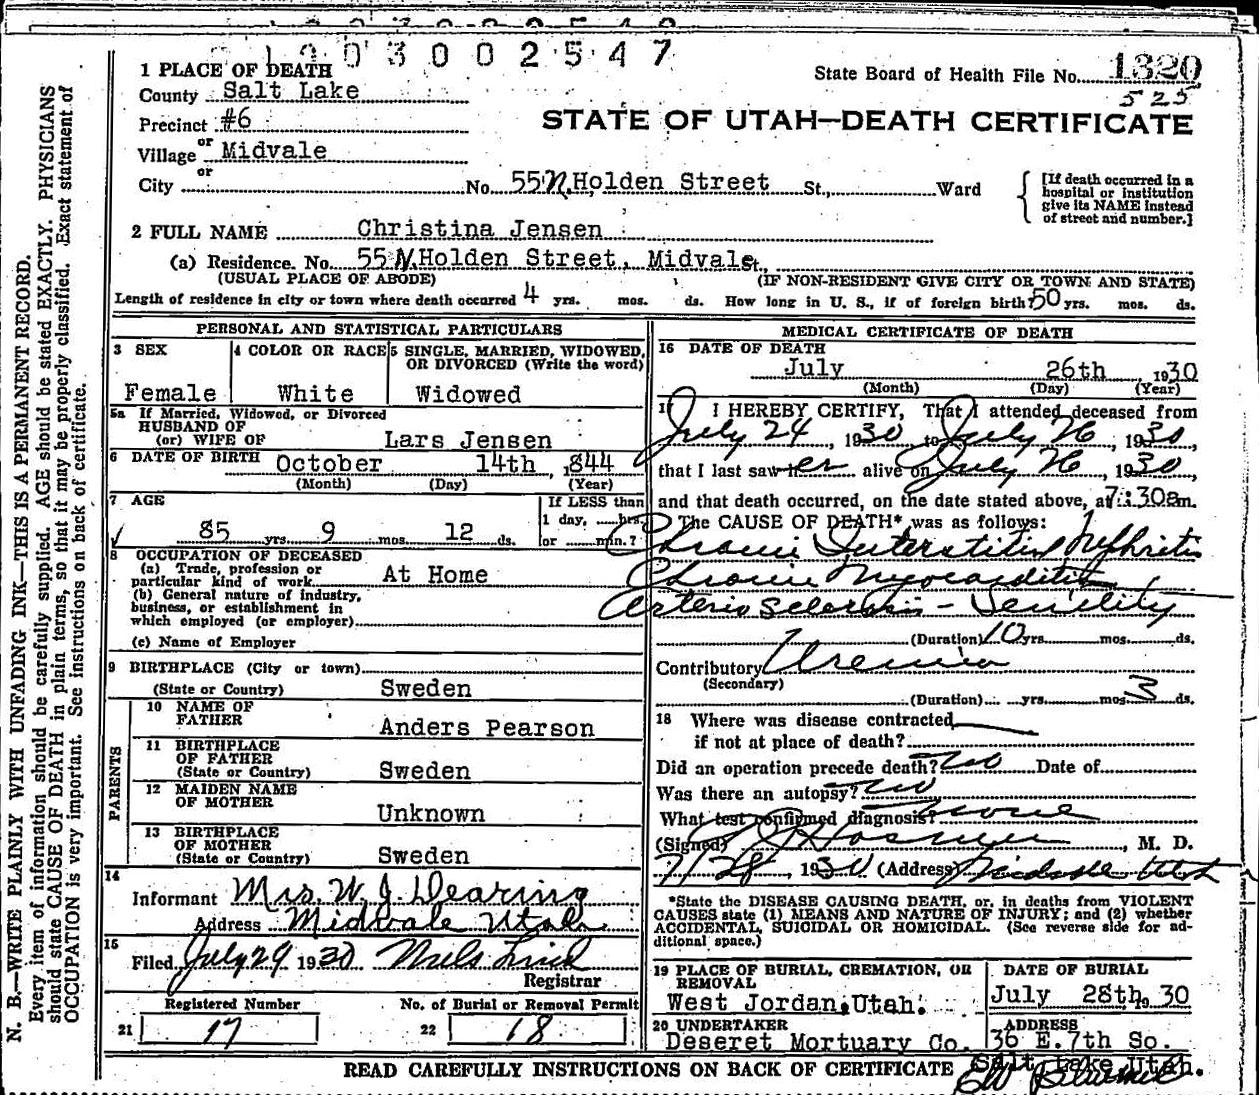 1903002547
1 PLACE OF DEATH
State Board of Health File No. 1320
525
County Salt Lake
Precinct #6
STATE OF UTAH—DEATH CERTIFICATE
Village or Midvale
or
City No. 55 N. Holden Street St., Ward
[If death occurred in a
hospital or institution
give its NAME instead
of street and number.]
2 FULL NAME Christina Jensen
(a) Residence. No. 55 N. Holden Street, Midvale St.,
(USUAL PLACE OF ABODE) (IF NON-RESIDENT GIVE CITY OR TOWN AND STATE)
Length of residence in city or town where death occurred 4 yrs. mos. ds. How long in U. S., if of foreign birth? 50 yrs. mos. ds.
PERSONAL AND STATISTICAL PARTICULARS
3 SEX
Female
4 COLOR OR RACE
White
5 SINGLE, MARRIED, WIDOWED,
OR DIVORCED (Write the word)
Widowed
5a If Married, Widowed, or Divorced
HUSBAND OF
(or) WIFE OF Lars Jensen
6 DATE OF BIRTH October 14th, 1844
(Month) (Day) (Year)
7 AGE
85 yrs. 9 mos. 12 ds.
If LESS than
1 day, hrs.
or min.?
8 OCCUPATION OF DECEASED
(a) Trade, profession or
particular kind of work At Home
(b) General nature of industry,
business, or establishment in
which employed (or employer)
(c) Name of Employer
9 BIRTHPLACE (City or town)
(State or Country) Sweden
PARENTS
10 NAME OF
FATHER Anders Pearson
11 BIRTHPLACE
OF FATHER
(State or Country) Sweden
12 MAIDEN NAME
OF MOTHER Unknown
13 BIRTHPLACE
OF MOTHER
(State or Country) Sweden
14
Informant Mrs. W. J. Dearing
Address Midvale Utah
15
Filed July 29 1930 Niels Lind
Registrar
Registered Number
21 17
No. of Burial or Removal Permit
22 18
MEDICAL CERTIFICATE OF DEATH
16 DATE OF DEATH
July 26th 1930
(Month) (Day) (Year)
17 I HEREBY CERTIFY, That I attended deceased from
July 24, 1930 to July 26, 1930,
that I last saw her alive on July 26, 1930
and that death occurred, on the date stated above, at 7:30am.
The CAUSE OF DEATH* was as follows:
Chronic Interstitial Nephritis
Chronic Myocarditis,
Arterio Sclerosis - Senility
(Duration) 10 yrs. mos. ds.
Contributory Uremia
(Secondary)
(Duration) yrs. mos. 3 ds.
18 Where was disease contracted
if not at place of death?
Did an operation precede death? No Date of
Was there an autopsy? No
What test confirmed diagnosis? None
(Signed) , M. D.
7/28, 1930 (Address) Midvale Utah
*State the DISEASE CAUSING DEATH, or, in deaths from VIOLENT
CAUSES state (1) MEANS AND NATURE OF INJURY; and (2) whether
ACCIDENTAL, SUICIDAL OR HOMICIDAL. (See reverse side for ad-
ditional space.)
19 PLACE OF BURIAL, CREMATION, OR
REMOVAL
West Jordan, Utah.
DATE OF BURIAL
July 28th, 30
20 UNDERTAKER
Deseret Mortuary Co.
ADDRESS
36 E. 7th So.
Salt Lake Utah.
READ CAREFULLY INSTRUCTIONS ON BACK OF CERTIFICATE
N. B.—WRITE PLAINLY WITH UNFADING INK—THIS IS A PERMANENT RECORD.
Every item of information should be carefully supplied. AGE should be stated EXACTLY. PHYSICIANS
should state CAUSE OF DEATH in plain terms, so that it may be properly classified. Exact statement of
OCCUPATION is very important. See instructions on back of certificate.